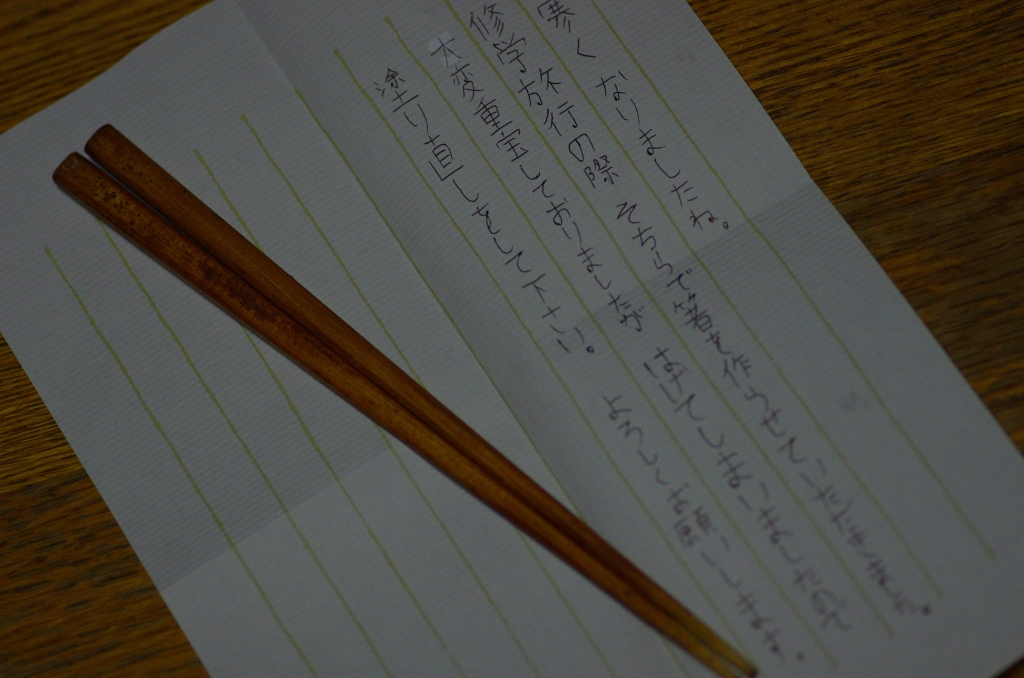 寒くなりましたね。
修学旅行の際 そちらで箸を作らせていただきました。
大変重宝しておりましたが はげてしまいましたので
塗り直しをして下さい。 よろしくお願いします。